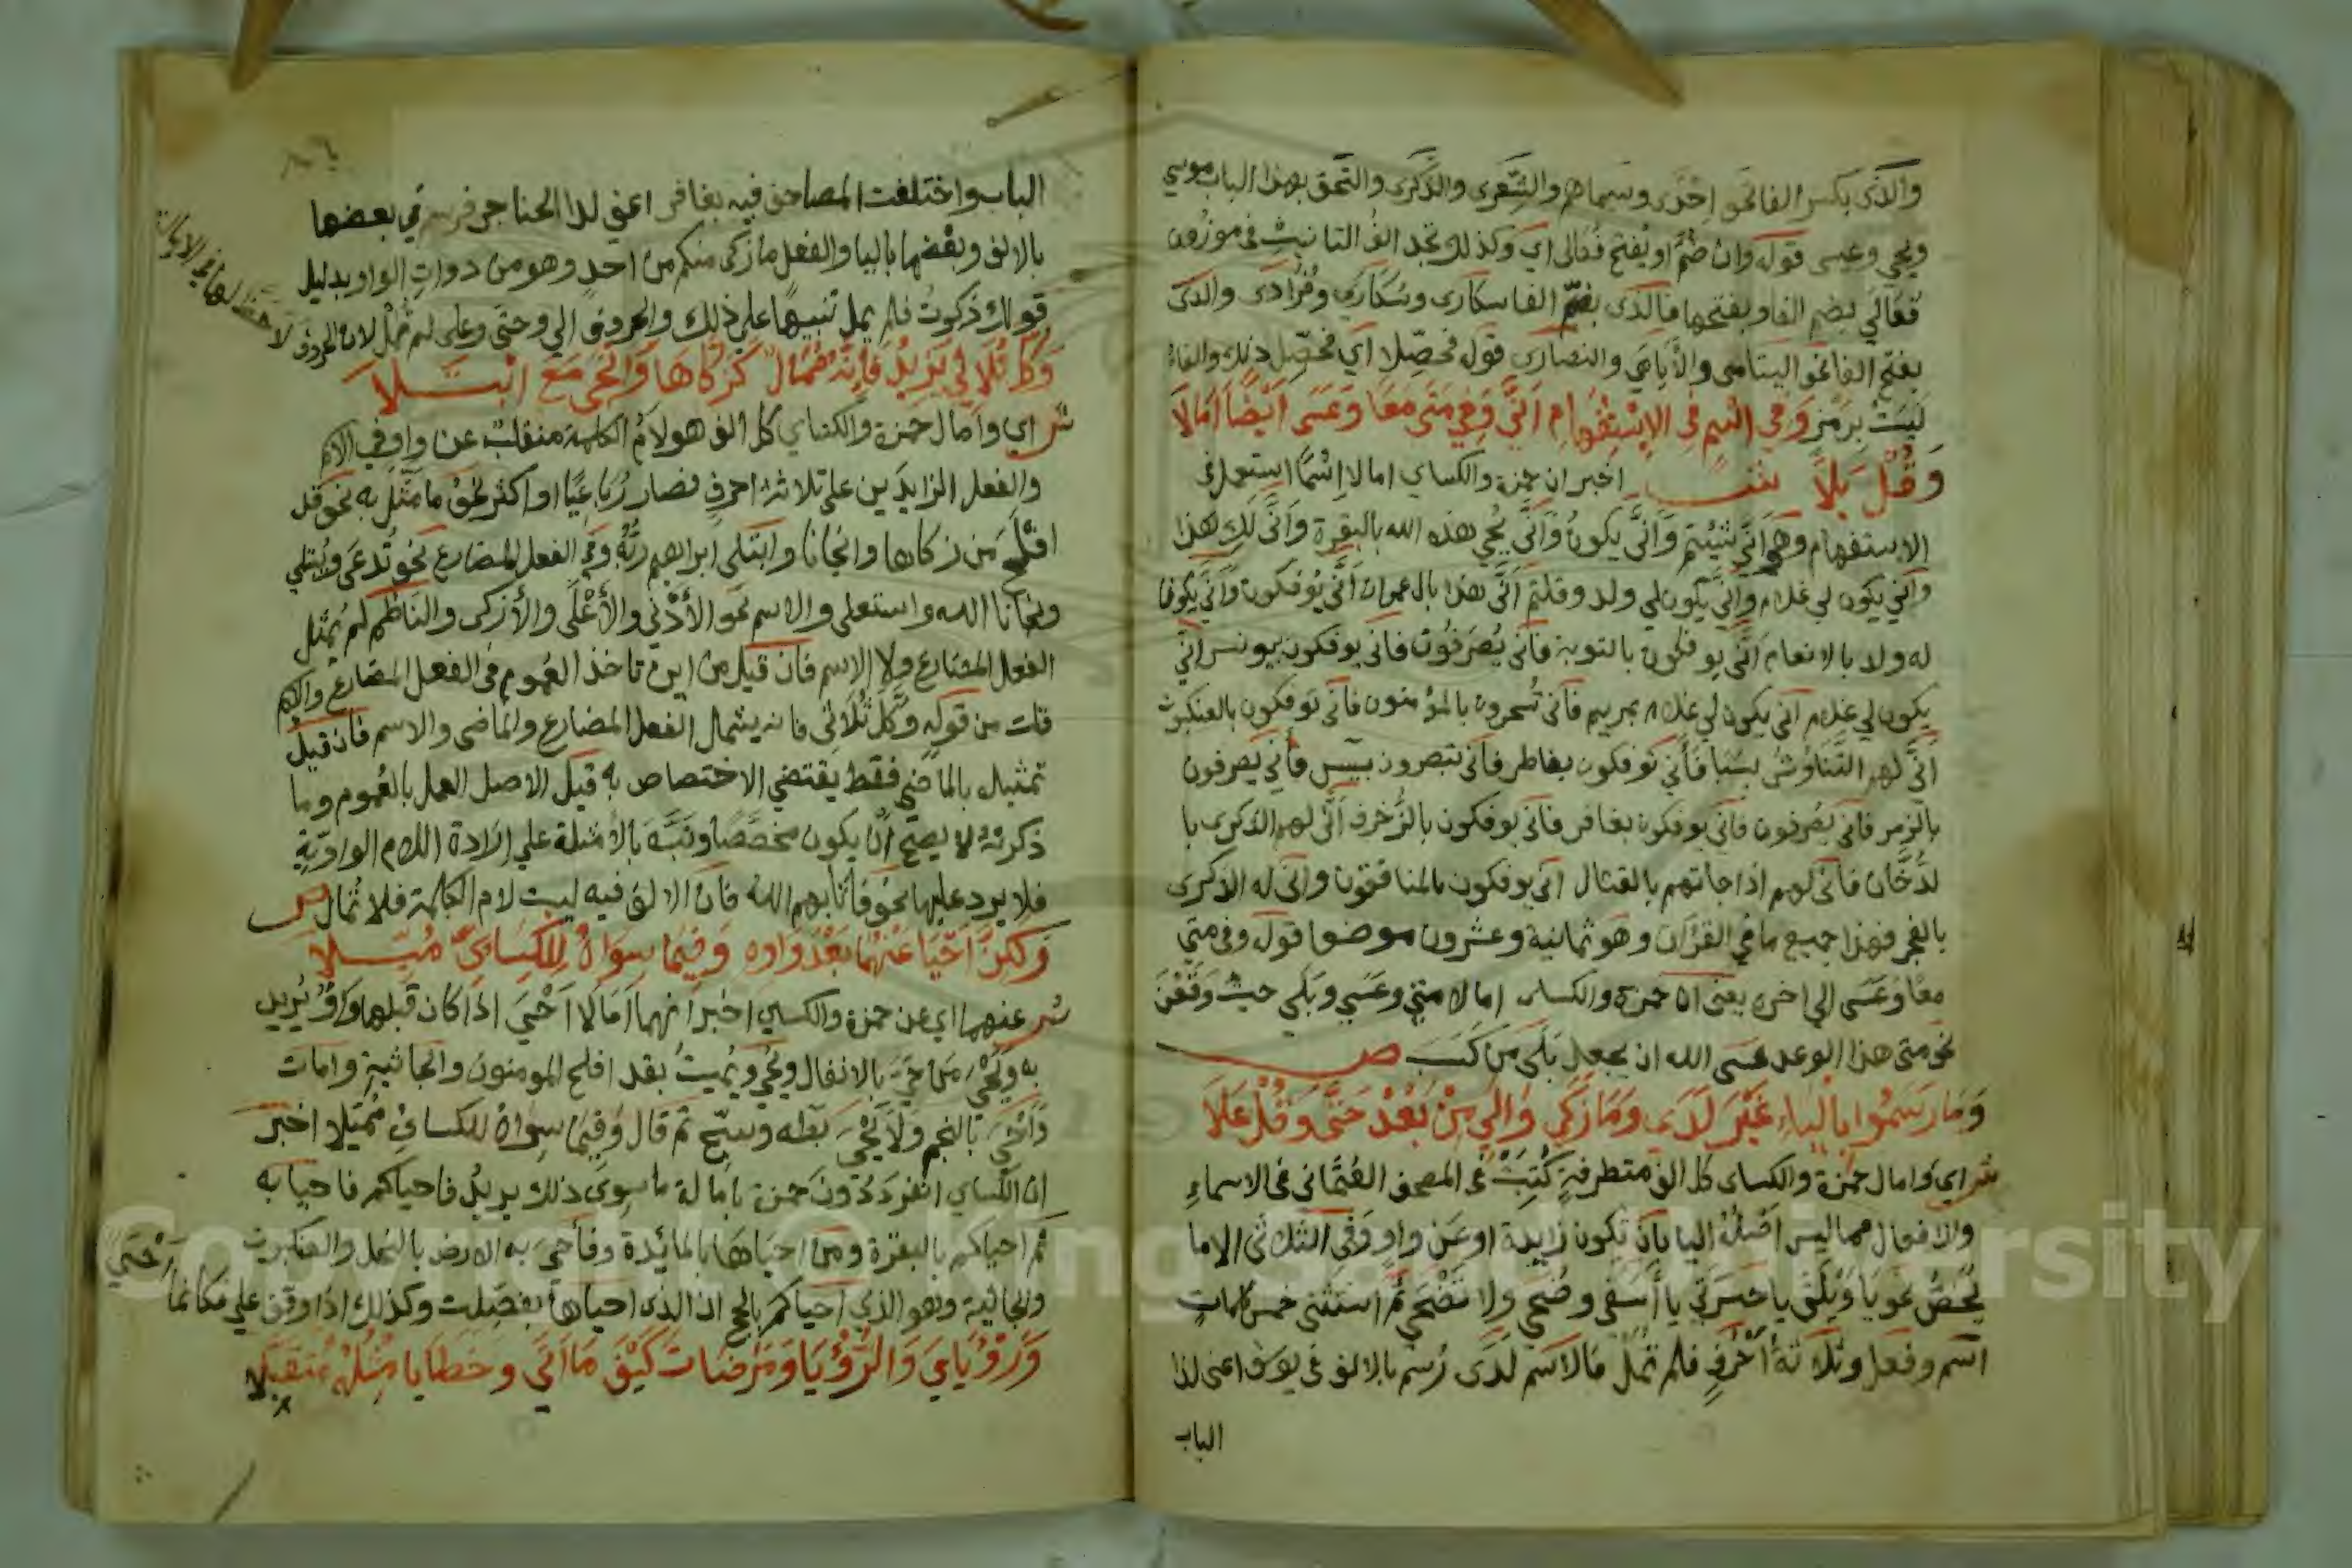 والذى بكسر الفا نحو احدى وسيماهم والشعرى والذكرى والتحق بهذا الباب موسي
ويحي وعيسى قوله وان ضم او يفتح فعالى اي وكذلك تجد الف التانيث في موزون
فعالي بضم الفا وبفتحها فالذى بضم الفا سكارى وسكارى وفرادى والذى
بفتح الفا نحو اليتامى والايامى والنصارى قوله فحصلا اي فحصل ذلك والفاء
ليست برمز وفي اسم في الاستفهام انى وفي متى معا وعسى ايضا امالا
وقل بلا ش اخبر ان حمزة والكساي امالا اسما استعمل في
الاستفهام وهو انى شيتم وانى يكون وانى يحي هذه الله بالبقرة وانى لك هذا
وانى يكون لي غلام وانى يكون لي ولد وقلتم انى هذا بال عمران انى يوفكون وانى يكون
له ولد بالانعام انى يوفكون بالتوبة فانى يصرفون فانى يوفكون بيونس انى
يكون لي غلام انى يكون لي غلام بمريم فانى تسحرون بالمومنون فانى يوفكون بالعنكبوت
انى لهم التناوش بسبا فانى توفكون بفاطر فانى تبصرون بيس فانى يصرفون
بالزمر فانى يصرفون فانى يوفكون بغافر فانى يوفكون بالزخرف انى لهم الذكرى با
لدخان فانى لهم اذا جاتهم بالقتال انى يوفكون بالمنافقون وانى له الذكرى
بالفجر فهذا جميع ما في القران وهو ثمانية وعشرون موضعا قوله وفي متى
معا وعسى الي اخره يعنى ان حمزة والكساى امالا متى وعسى وبلى حيث وقعن
نحو متى هذا الوعد عسى الله ان يجعل بلى من كسب ص
وما رسموا بالياء غير لدى وما زكى والى من بعد حتى وقل على
ش اي وامال حمزة والكساى كل الف متطرفة كتبت في المصحف العثمانى في الاسماء
والافعال مما ليس اصله اليا بان تكون زايدة او عن واو وفي الثلاثى الاما
يخص نحو يا ويلتى يا حسرتى يا اسفى وضحى ولا تضحى ثم استثنى خمس كلمات
اسم وفعل وثلاثة احرف فلم تمل فالاسم لدى رسم بالالف في يوسف اعنى لدا
الباب
الباب واختلفت المصاحف فيه بغافر اعني لدا الحناجر فرسم في بعضها
بالالف وبعضها باليا والفعل ما زكى منكم من احد وهو من ذوات الواو بدليل
قولك زكوت فلم يمل تنبيها على ذلك والحروف الي وحتى وعلى لم تمل لان الحروف
لا حظ لها في الامالة
وكل ثلاثي يزيد فانه ممال كزكاها وانجى مع ابتلا
ش اي وامال حمزة والكساي كل الف هو لام الكلمة منقلب عن واو في الاسم
والفعل الزايدين على ثلاثة احرف فصار رباعيا او اكثر نحو ما مثل به نحو قد
افلح من زكاها وانجانا وابتلى ابراهيم ربه وفي الفعل المضارع نحو تدعى ويتلى
ونجانا الله واستعلى والاسم نحو الادنى والاعلى والازكى والناظم لم يمثل
الفعل المضارع ولا الاسم فان قيل من اين تاخذ العموم في الفعل المضارع والاسم
قلت من قوله وكل ثلاثى فانه يشمال الفعل المضارع والماضى والاسم فان قيل
تمثيله بالماضى فقط يقتضي الاختصاص به قيل الاصل العمل بالعموم وما
ذكرته لا يصح ان يكون مخصصا ونبه بالامثلة علي ارادة اللام الواوية
فلا يرد عليها نحو فاثابهم الله فان الالف فيه ليست لام الكلمة فلا تمال ص
ولكن احيا عنهما بعد واوه وفيما سواه للكساى ميلا
ش عنهما اي عن حمزة والكساي اخبر انهما امالا احيى اذا كان قبلها واو يريد
به ويحي من حي بالانفال ونحي ونميت بقد افلح المومنون والجاثية وامات
واحى بالنجم ولا يحي بطه وسبح ثم قال وفيما سواه للكساى ميلا اخبر
ان الكساي انفرد دون حمزة بامالة ما سوى ذلك يريد فاحياكم فاحيا به
ثم احياكم بالبقرة ومن احياها بالمايدة وفاحى به الارض بالنحل والعنكبوت
والجاثية وهو الذي احياكم بالحج ان الذى احياها بفصلت وكذلك اذا وقف علي فكانما
ورؤياي والرؤيا ومرضات كيف ما اتى وخطايا مثله متقبلا